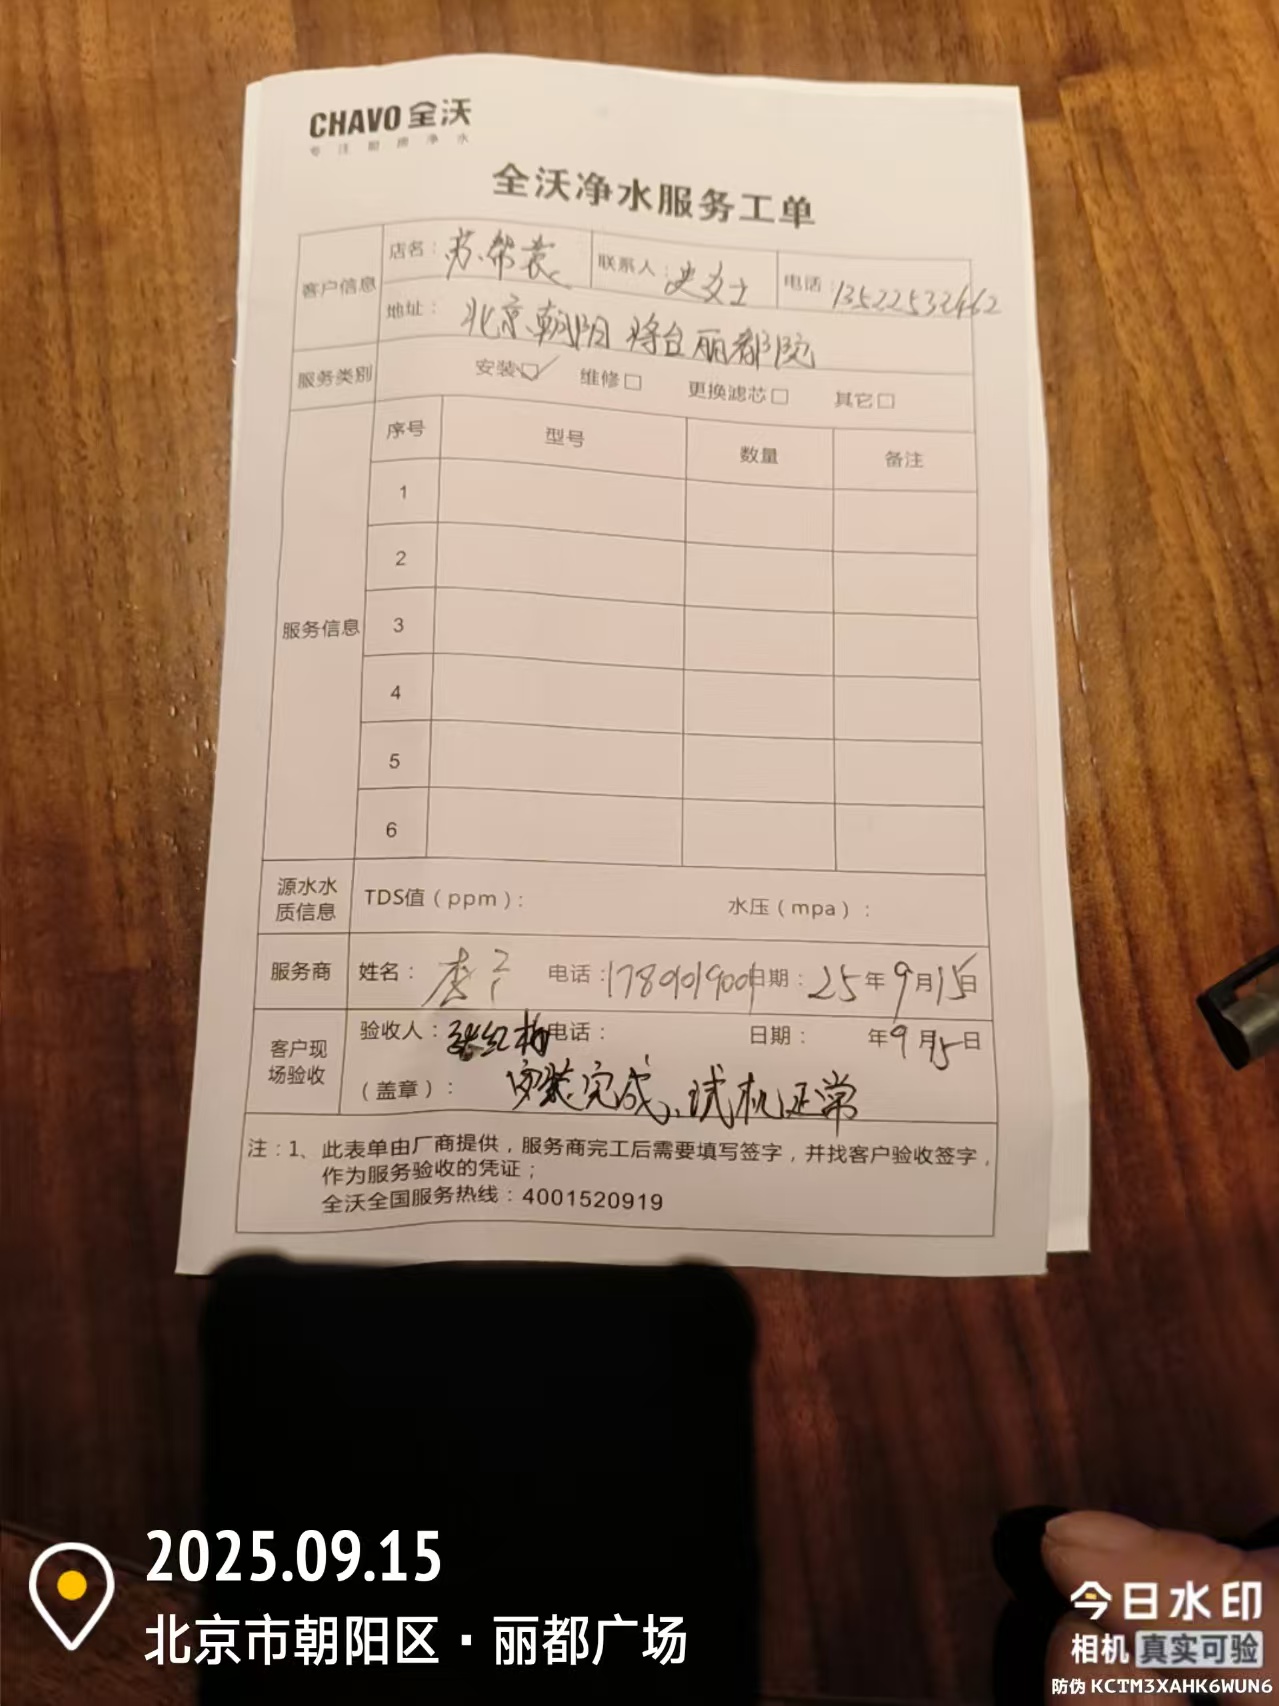 CHAVO 全沃
专注商用净水
全沃净水服务工单
客户信息 店名：苏帮袁 联系人：史女士 电话：13522532462
地址：北京朝阳将台丽都
服务类别 安装☑ 维修□ 更换滤芯□ 其它□
服务信息 序号 型号 数量 备注
1
2
3
4
5
6
源水水质信息 TDS值（ppm）： 水压（mpa）：
服务商 姓名：李 电话：17890190 日期：25年9月15日
客户现场验收 验收人：张红梅 电话： 日期： 年9月15日
（盖章）： 安装完成、试机正常
注：1、此表单由厂商提供，服务商完工后需要填写签字，并找客户验收签字，
作为服务验收的凭证；
全沃全国服务热线：4001520919
2025.09.15
北京市朝阳区·丽都广场
今日水印
相机 真实可验
防伪 KCTM3XAHK6WUN6